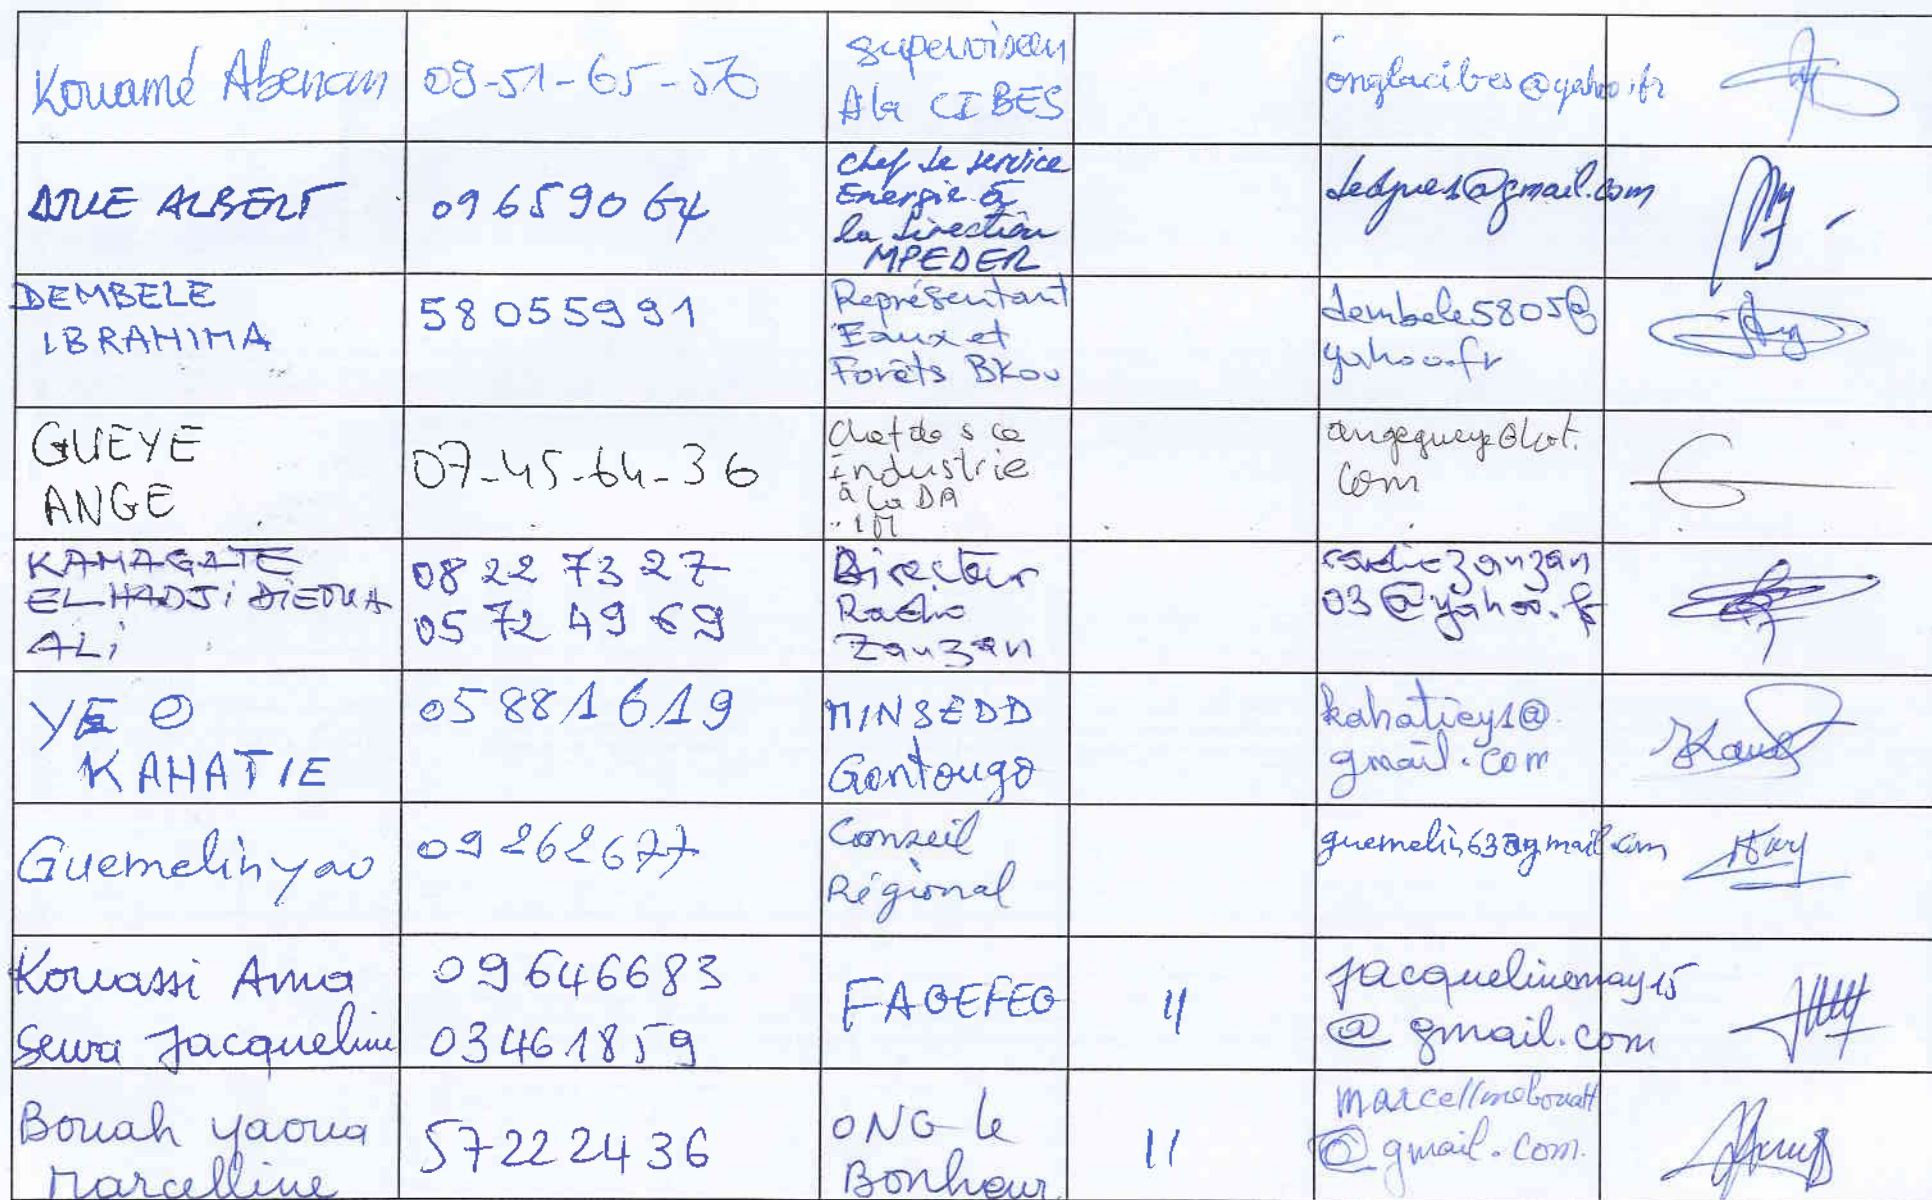 Kouamé Abenan
09-51-65-56
superviseur
A la CIBES
onglacibes@yahoo.fr
ALBERT
09659064
chef de service
Energie à
la Direction
MPEDER
@gmail.com
DEMBELE
IBRAHIMA
58055991
Représentant
Eaux et
Forêts BKou
dembele5805@
yahoo.fr
GUEYE
ANGE
07-45-64-36
Chef de sce
Industrie
à la DA
angegueye@hot.
com
KAMAGATE
ELHADJI
ALi
08 22 73 27
05 72 49 69
Directeur
Radio
Zanzan
radiozanzan
03@yahoo.fr
YEO
KAHATIE
05881619
MINSEDD
Gontougo
kahatiey1@
gmail.com
Guemelin yao
09262677
Conseil
Régional
guemelin63@gmail.com
Kouassi Ama
Sewa Jacqueline
09646683
03461859
FAGEFEG
11
jacquelinemay15
@gmail.com
Bouah yaoua
Marcelline
57222436
ONG le
Bonheur
11
marcellinebouah
@gmail.com.